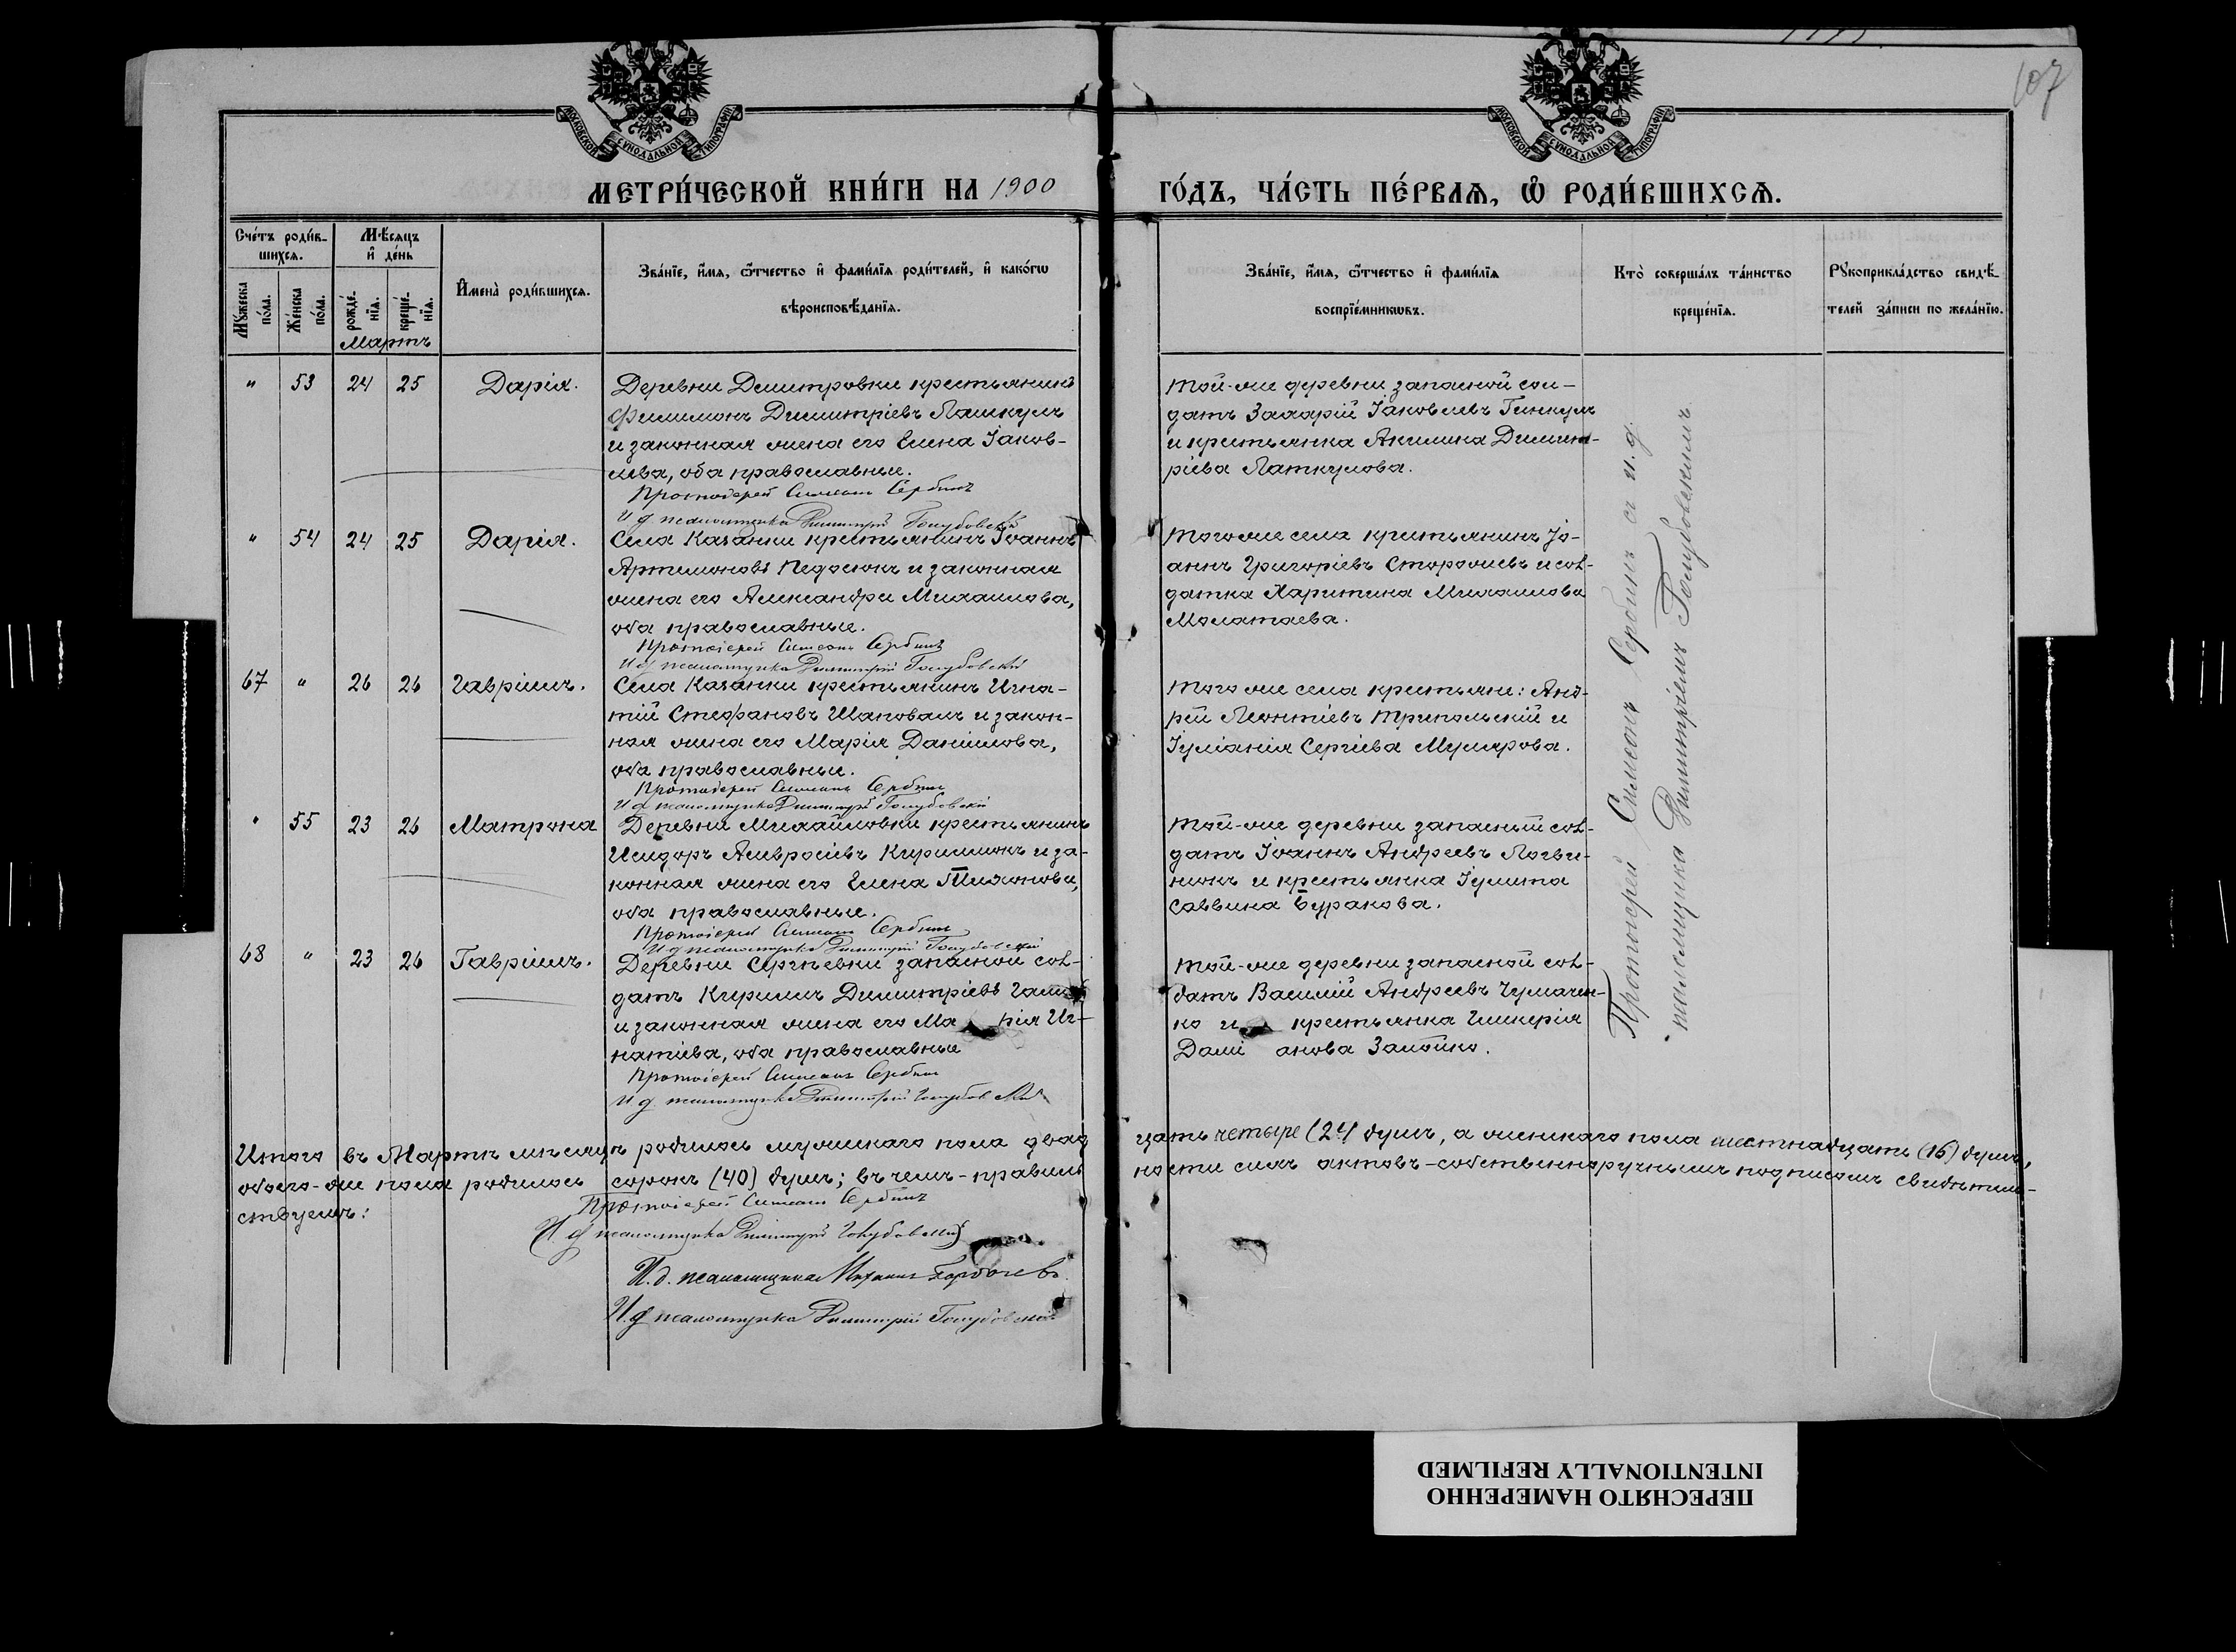 107
МОСКОВСКОЙ СѴНОДАЛЬНОЙ ТИПОГРАФІИ
МОСКОВСКОЙ СѴНОДАЛЬНОЙ ТИПОГРАФІИ
МЕТРИ́ЧЕСКОЙ КНИ́ГИ НА 1900
ГО́ДЪ, ЧА́СТЬ ПЕ́РВАѦ, Ѡ҆ РОДИ́ВШИХСѦ.
Сче́тъ роди́в-
шихсѧ.
Мꙋ́жеска по́ла.
Же́нска по́ла.
Мѣ́сяцъ
и҆ де́нь
рожде́нїѧ.
креще́нїѧ.
Мартъ
И҆мена̀ роди́вшихсѧ.
Зва́нїе, и҆́мѧ, ѻ҆́тчество и҆ фами́лїѧ роди́телей, и҆ како́гѡ
вѣроисповѣ́данїѧ.
Зва́нїе, и҆́мѧ, ѻ҆́тчество и҆ фами́лїѧ
воспрїе́мникѡвъ.
Кто̀ соверша́лъ та́инство
креще́нїѧ.
Рꙋкоприкла́дство свидѣ́-
телей за́писи по жела́нїю.
" 53 24 25 Дарія.
Деревни Димитровки крестьянинъ
Филимонъ Димитріевъ Лашкулъ
и законная жена его Елена Іаков-
лева, оба православные.
Протоіерей Симеонъ Сербинъ
И д псаломщика Димитрій Голубовскій
Той-же деревни запасной сол-
датъ Захарій Іаковлевъ Гинкулъ
и крестьянка Акилина Димит-
ріева Латкулова.
" 54 24 25 Дарія.
Села Казанки крестьянинъ Іоаннъ
Артемоновъ Недосюкъ и законная
жена его Александра Михаилова,
оба православные.
Протоіерей Симеонъ Сербинъ
И д псаломщика Димитрій Голубовскій
Того же села крестьянинъ Іо-
аннъ Григоріевъ Сторожевъ и сол-
датка Харитина Михаилова
Малатаева.
67 " 26 26 Гавріилъ.
Села Казанки крестьянинъ Игна-
тій Стефановъ Шаповалъ и закон-
ная жена его Марія Даніилова,
оба православные.
Протоіерей Симеонъ Сербинъ
И д псаломщика Димитрій Голубовскій
Того же села крестьяне: Анд-
рей Леонтіевъ Трипольскій и
Іуліанія Сергіева Мулярова.
" 55 23 26 Матрона
Деревни Михайловки крестьянинъ
Исидоръ Амвросіевъ Кириллюкъ и за-
конная жена его Елена Тихонова,
оба православные.
Протоіерей Симеонъ Сербинъ
И д псаломщика Димитрій Голубовскій
Той-же деревни запасный сол-
датъ Іоаннъ Андреевъ Логви-
нюкъ и крестьянка Іулита
Саввина Буракова.
68 " 23 26 Гавріилъ.
Деревни Сергѣевки запасной сол-
датъ Кириллъ Димитріевъ
и законная жена его Марія Иг-
натіева, оба православные
Протоіерей Симеонъ Сербинъ
И д псаломщика Димитрій Голубовскій
Той-же деревни запасной сол-
датъ Василій Андреевъ Чумачен-
ко и крестьянка Гликерія
Даміанова Замойко.
Протоіерей Симеонъ Сербинъ съ и.д.
псаломщика Димитріемъ Голубовскимъ
Итого въ Мартѣ мѣсяцѣ родилось мужскаго пола двад
цать четыре (24) душъ, а женскаго пола шестнадцать (16) душъ,
обоего-же пола родилось сорокъ (40) душъ; въ чемъ-правиль
ности сихъ актовъ-собственноручнымъ подписомъ свидѣтель-
ствуемъ:
Протоіерей Симеонъ Сербинъ
И д псаломщика Димитрій Голубовскій
И.д. псаломщика Горбачевъ.
И.д псаломщика Димитрій Голубовскій
ПЕРЕСНЯТО НАМЕРЕННО
INTENTIONALLY REFILMED